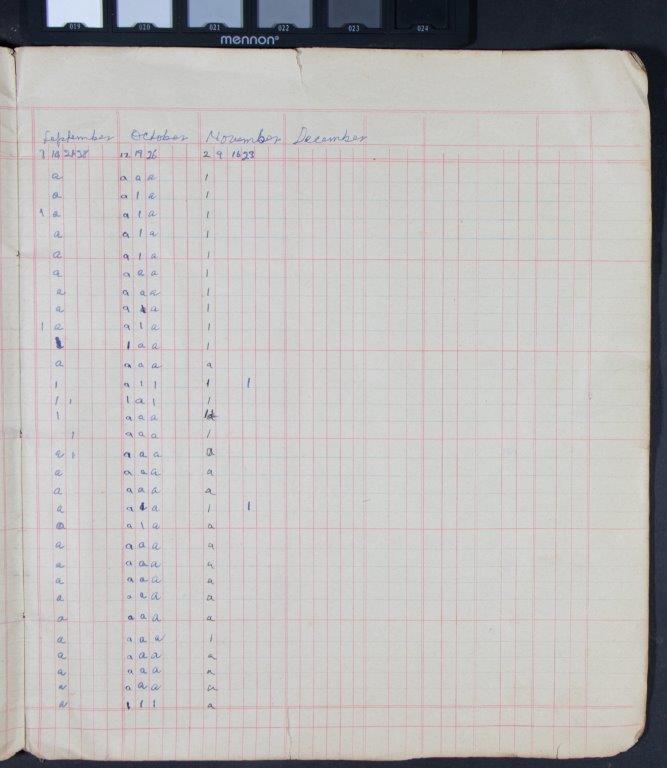 019 020 021 022 023 024
mennon®
September October November December
7 14 21 28 12 19 26 2 9 16 23
a a a a 1
a a 1 a 1
1 a a 1 a 1
a a 1 a 1
a a 1 a 1
a a a a 1
a a a a 1
a a a 1
1 a a 1 a 1
1 1 a a 1
a a a a a
1 a 1 1 1 1
1 1 1 a 1 1
1 a a a
1 a a a 1
a 1 a a a a
a a a a a
a a a a a
a a 1 a 1 1
a a 1 a a
a a a a a
a a a a a
a a a a a
a a a a a
a a a a a
a a a a 1
a a a a a
a a a a a
a a a a a
a 1 1 1 a